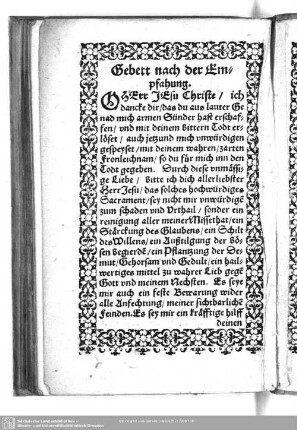 Gebett nach der Em⸗
pfahung.
O HErr JEsu Christe / ich
dancke dir / das du aus lauter Ge
nad mich armen Sünder hast erschaf⸗
fen / vnd mit deinem bittern Todt er⸗
löset / auch jetzund mich vnwürdigen
gespeyset / mit deinem wahren / zarten
Fronleichnam / so du für mich inn den
Todt gegeben. Durch diese vnmässi⸗
ge Liebe / bitte ich dich allerliebster
Herr Jesu / das solches hochwürdiges
Sacrament / sey nicht mir vnwürdigē
zum schaden vnd Vrthail / sonder ein
reinigung aller meiner Missethat / ein
Stärckung des Glaubens / ein Schilt
des Willens / ein Außtilgung der bö⸗
sen begierdē / ein Pflantzung der De⸗
mut / Gehorsam vnd Gedult / ein hail⸗
wertiges mittel zu wahrer Lieb gegē
Gott vnd meinem Nechsten. Es seye
mir auch ein feste Bewarung wider
alle Anfechtung / meiner sichtbarlichē
Feinden. Es sey mir ein kräfftige hülff
deinen